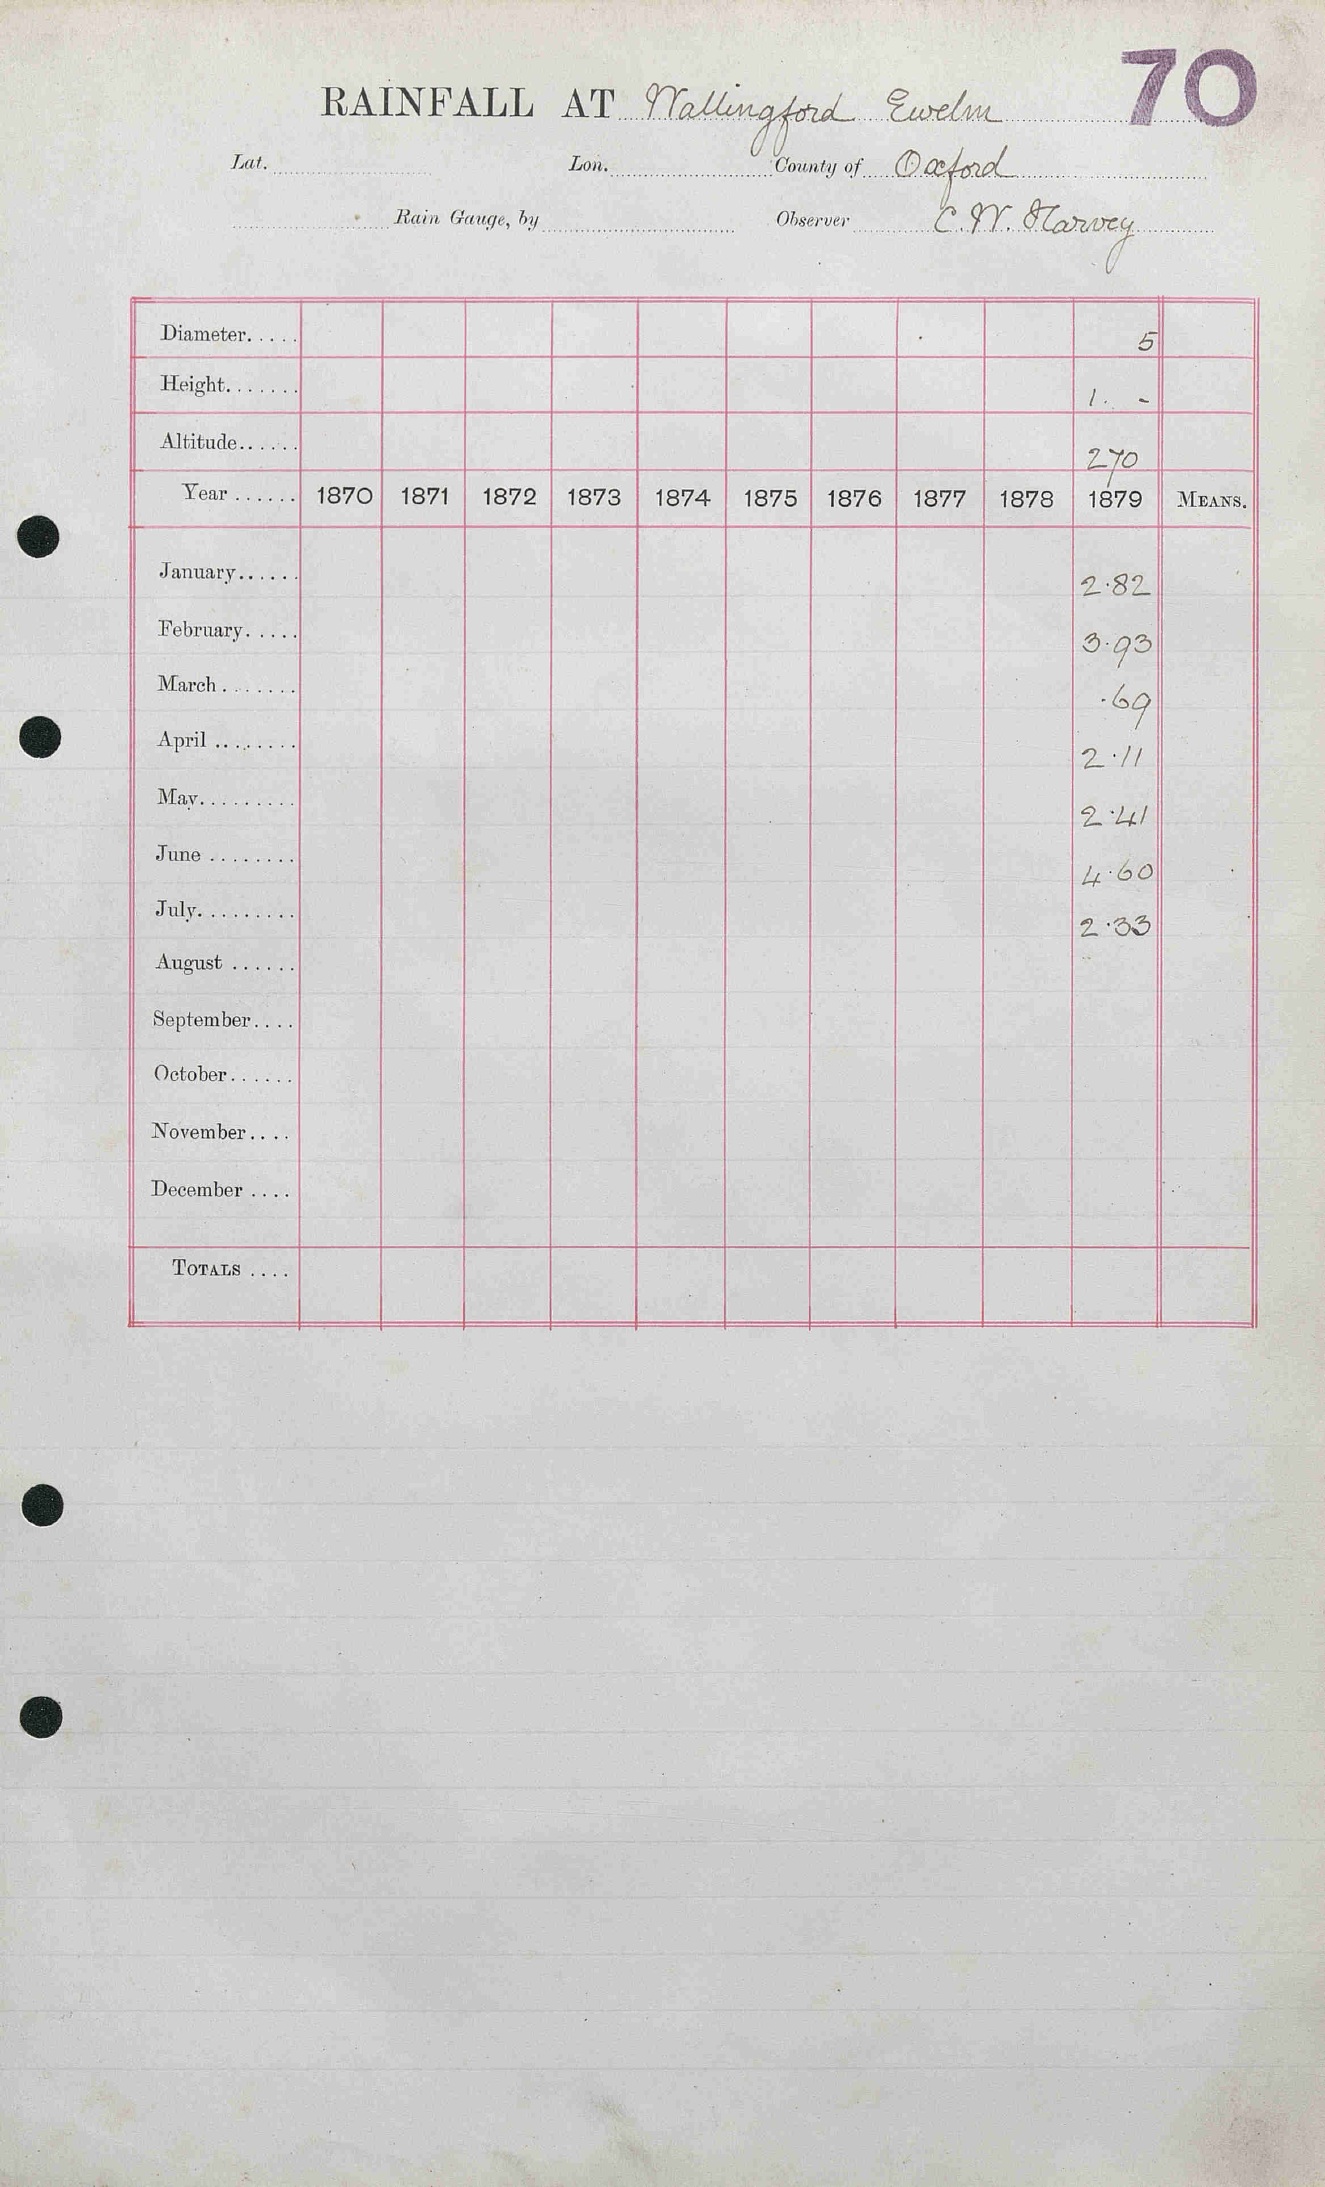 70
RAINFALL AT Wallingford Ewelm
Lat. Lon. County of Oxford
Rain Gauge, by Observer C. W. Harvey
Diameter..... 5
Height....... 1. -
Altitude...... 270
Year ...... 1870 1871 1872 1873 1874 1875 1876 1877 1878 1879 MEANS.
January...... 2.82
February..... 3.93
March ....... .69
April ........ 2.11
May......... 2.41
June ........ 4.60
July......... 2.33
August ......
September....
October......
November....
December ....
TOTALS ....